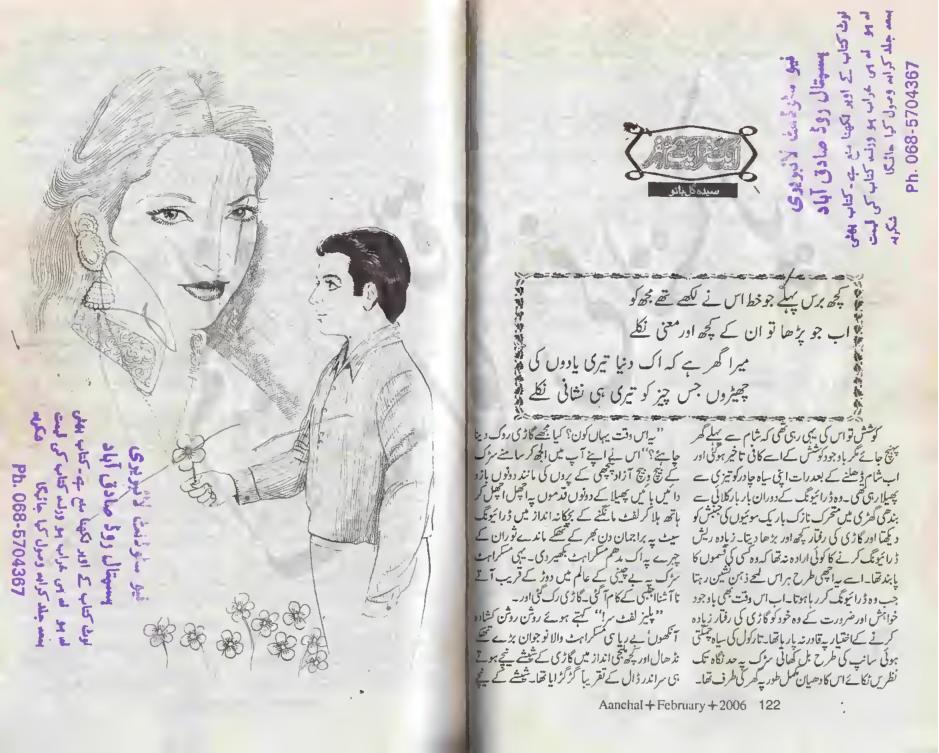 ایک سفر ایک ہمسفر
سیدہ گل بانو
کچھ برس پہلے جو خط اس نے لکھے تھے مجھ کو
اب جو پڑھا تو ان کے کچھ اور معنی نکلے
میرا گھر ہے کہ اک دنیا تیری یادوں کی
چھیڑوں جس چیز کو تیری ہی نشانی نکلے
کوشش تو اس کی یہی رہی تھی کہ شام سے پہلے گھر
پہنچ جائے مگر باوجود کوشش کے اسے کافی تاخیر ہوگئی اور
اب شام ڈھلنے کے بعد رات اپنی سیاہ چادر کو تیزی سے
پھیلا رہی تھی۔ وہ ڈرائیونگ کے دوران بار بار کلائی سے
بندھی گھڑی میں متحرک نازک باریک سوئیوں کی جنبش کو
دیکھتا اور گاڑی کی رفتار کچھ اور بڑھا دیتا۔ زیادہ ریش
ڈرائیونگ کرنے کا کوئی ارادہ نہ تھا کہ وہ کسی کی قسموں کا
پابند تھا۔ اسے یہ اچھی طرح ہر اس لمحے ذہن نشین رہتا
جب وہ ڈرائیونگ کر رہا ہوتا۔ اب اس وقت بھی باوجود
خواہش اور ضرورت کے وہ خود کو گاڑی کی رفتار زیادہ
کرنے کے اختیار پہ قادر نہ پا رہا تھا۔ تارکول کی سیاہ چمکتی
ہوئی سانپ کی طرح بل کھاتی سڑک پہ حد نگاہ تک
نظریں ٹکائے اس کا دھیان مکمل طور پہ گھر کی طرف تھا۔
"یہ اس وقت یہاں کون؟ کیا مجھے گاڑی روک دینا
چاہئے؟" اس نے اپنے آپ میں الجھ کر سامنے سڑک
کے بیچ و بیچ آزاد پنچھی کے پروں کی مانند دونوں بازو
دائیں بائیں پھیلا کے دونوں قدموں پہ اچھل اچھل کر
ہاتھ ہلا کر لفٹ مانگنے کے بچکانہ انداز میں ڈرائیونگ
سیٹ پہ براجمان دن بھر کے تھکے ماندے ثوران کے
چہرے پہ اک مدھم مسکراہٹ بکھیر دی۔ یہی مسکراہٹ
سڑک پہ بے چینی کے عالم میں دوڑ کے قریب آتے
نا آشنا اجنبی کے کام آگئی۔ گاڑی رک گئی اور۔
"پلیز لفٹ سر!" کہتے ہوئے روشن روشن کشادہ
آنکھوں بے ریا سی مسکراہٹ والا نوجوان بڑے تھکے
نڈھال اور کچھ ملتجی انداز میں گاڑی کے شیشے نیچے ہوتے
ہی سر اندر ڈال کے تقریباً گڑگڑایا تھا۔ شیشے کے نیچے
Aanchal + February + 2006 122
نیو سٹوڈنٹ لائبریری
ہسپتال روڈ صادق آباد
نوٹ کتاب کے اوپر لکھنا منع ہے۔ کتاب پھٹی
نہ ہو نہ ہی خراب ہو ورنہ کتاب کی قیمت
بمعہ جلد کرایہ وصول کیا جائیگا
شکریہ
Ph. 068-5704367
نیو سٹوڈنٹ لائبریری
ہسپتال روڈ صادق آباد
نوٹ کتاب کے اوپر لکھنا منع ہے۔ کتاب پھٹی
نہ ہو نہ ہی خراب ہو ورنہ کتاب کی قیمت
بمعہ جلد کرایہ وصول کیا جائیگا
شکریہ
Ph. 068-5704367